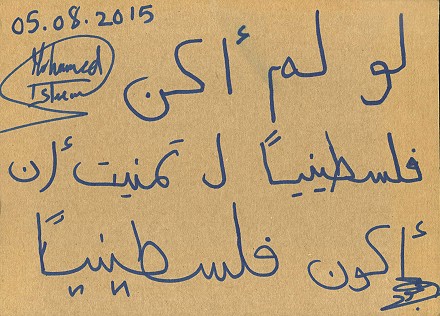 05.08.2015
Mohamed
لو لم أكن
فلسطينياً ل تمنيت أن
أكون فلسطينياً